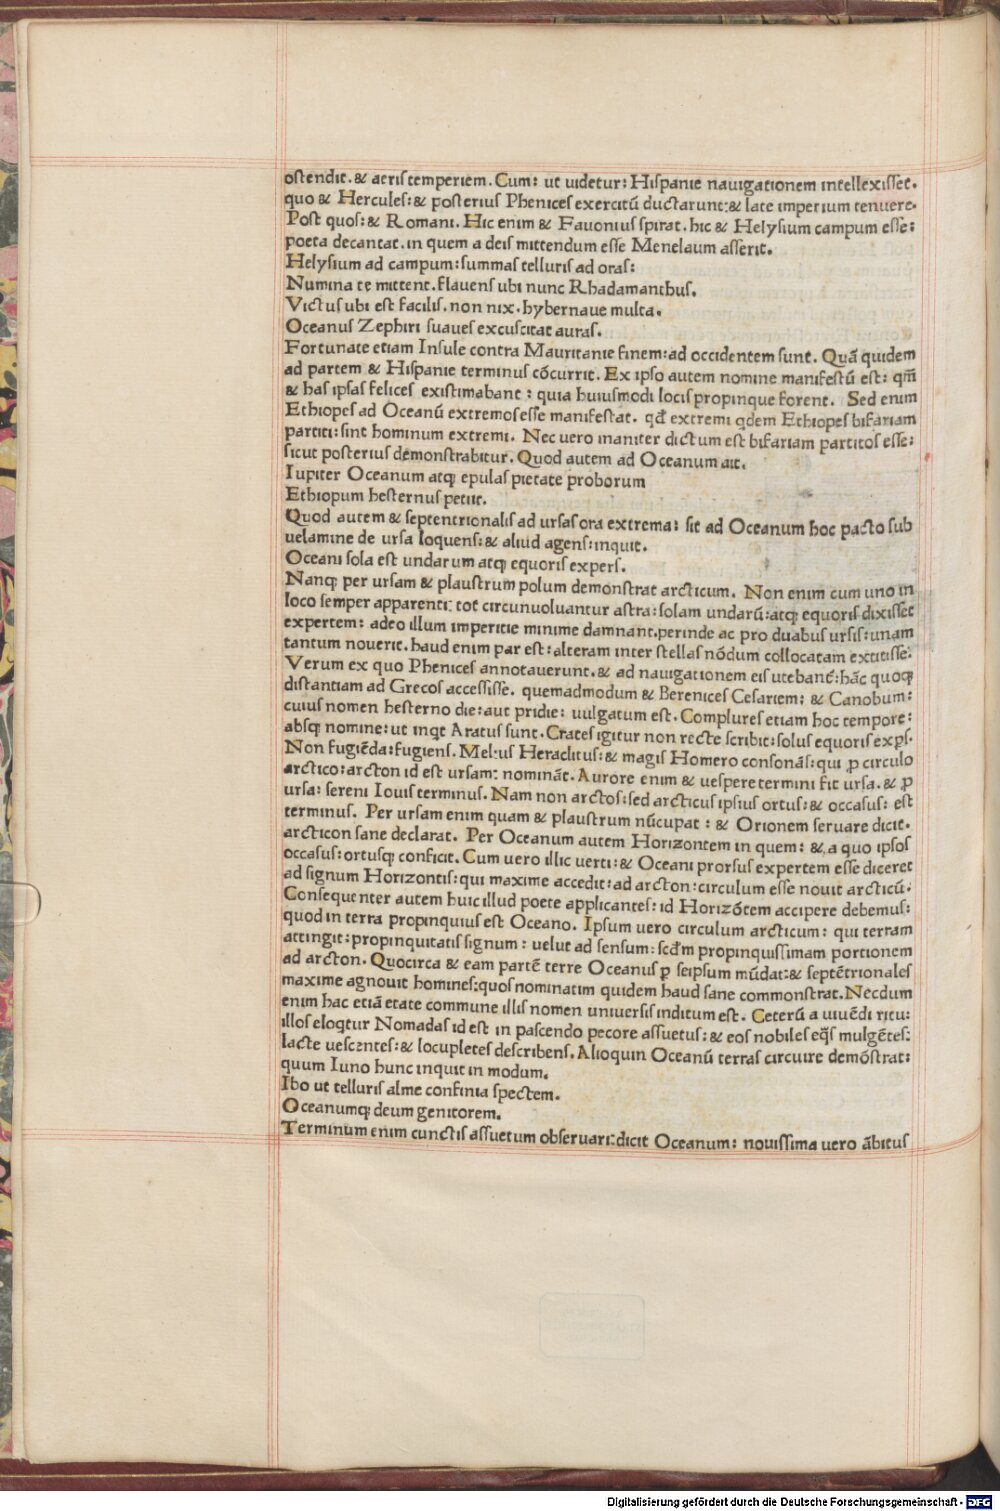 ostendit. & aeris temperiem. Cum: ut uidetur: Hispanie nauigationem intellexisset.
quo & Hercules: & posterius Phenices exercitū ductarunt: & late imperium tenuere.
Post quos: & Romani. Hic enim & Fauonius spirat. hic & Helysium campum esse:
poeta decantat. in quem a deis mittendum esse Menelaum asserit.
Helysium ad campum: summas telluris ad oras:
Numina te mittent. flauens ubi nunc Rhadamanthus.
Victus ubi est facilis. non nix. hybernaue multa.
Oceanus Zephiri suaues excuscitat auras.
Fortunate etiam Insule contra Mauritanie finem: ad occidentem sunt. Quā quidem
ad partem & Hispanie terminus cōcurrit. Ex ipso autem nomine manifestū est: qm̄
& has ipsas felices existimabant: quia huiusmodi locis propinque forent. Sed enim
Ethiopes ad Oceanū extremos esse manifestat. qđ extremi qdem Ethiopes bifariam
partiti: sint hominum extremi. Nec uero inaniter dictum est bifariam partitos esse:
sicut posterius demonstrabitur. Quod autem ad Oceanum ait.
Iupiter Oceanum atq; epulas pietate proborum
Ethiopum hesternus petiit.
Quod autem & septentrionalis ad ursas ora extrema: sit ad Oceanum hoc pacto sub
uelamine de ursa loquens: & aliud agens: inquit.
Oceani sola est undarum atq; equoris expers.
Nanq; per ursam & plaustrum polum demonstrat arcticum. Non enim cum uno in
loco semper apparenti: tot circunuoluantur astra: solam undarū: atq; equoris dixisset
expertem: adeo illum imperitie minime damnant. perinde ac pro duabus ursis: unam
tantum nouerit. haud enim par est: alteram inter stellas nōdum collocatam extitisse:
Verum ex quo Phenices annotauerunt. & ad nauigationem eis utebant̄: hāc quoq;
distantiam ad Grecos accessisse. quemadmodum & Berenices Cesariem: & Canobum:
cuius nomen hesterno die: aut pridie: uulgatum est. Complures etiam hoc tempore:
absq; nomine: ut inqt Aratus sunt. Crates igitur non recte scribit: solus equoris exp̱s.
Non fugiēda: fugiens. Melius Heraclitus: & magis Homero consonās: qui p̱ circulo
arctico: arcton id est ursam: nominat̄. Aurore enim & uespere termini fit ursa. & p̱
ursa: sereni Iouis terminus. Nam non arctos: sed arcticus ipsius ortus: & occasus: est
terminus. Per ursam enim quam & plaustrum nūcupat: & Orionem seruare dicit.
arcticon sane declarat. Per Oceanum autem Horizontem in quem: & a quo ipsos
occasus: ortusq; conficit. Cum uero illic uerti: & Oceani prorsus expertem esse diceret
ad signum Horizontis: qui maxime accedit: ad arcton: circulum esse nouit arcticū.
Consequenter autem huic illud poete applicantes: id Horizōtem accipere debemus:
quod in terra propinquius est Oceano. Ipsum uero circulum arcticum: qui terram
attingit: propinquitatis signum: uelut ad sensum: scd̄m propinquissimam portionem
ad arcton. Quocirca & eam partē terre Oceanus p̱ seipsum mūdat: & septētrionales
maxime agnouit homines: quos nominatim quidem haud sane commonstrat. Necdum
enim hac etiā etate commune illis nomen uniuersis inditum est. Ceterū a uiuēdi ritu:
illos eloqtur Nomadas id est in pascendo pecore assuetus: & eos nobiles eq̄s mulgētes:
lacte uescentes: & locupletes describens. Alioquin Oceanū terras circuire demōstrat:
quum Iuno hunc inquit in modum.
Ibo ut telluris alme confinia spectem.
Oceanumq; deum genitorem.
Terminum enim cunctis assuetum obseruari: dicit Oceanum: nouissima uero ābitus
Digitalisierung gefördert durch die Deutsche Forschungsgemeinschaft - DFG